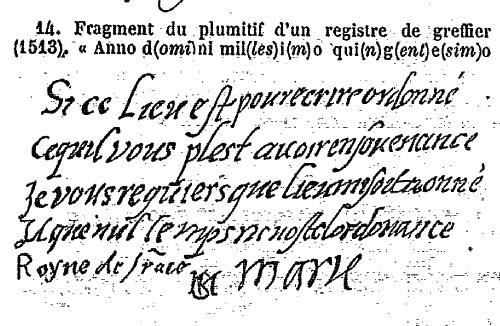 14. Fragment du plumitif d'un registre de greffier
(1513). « Anno d(omi)ni mil(les)i(m)o qui(n)g(ent)e(sim)o
Si ce Lieu est pour ecrire ordonné
Ce quil vous plest auoir en souenance
Je vous requiers que lieu mi soit donné
Et que nul temps n oste lordonance
Royne de france MARIE